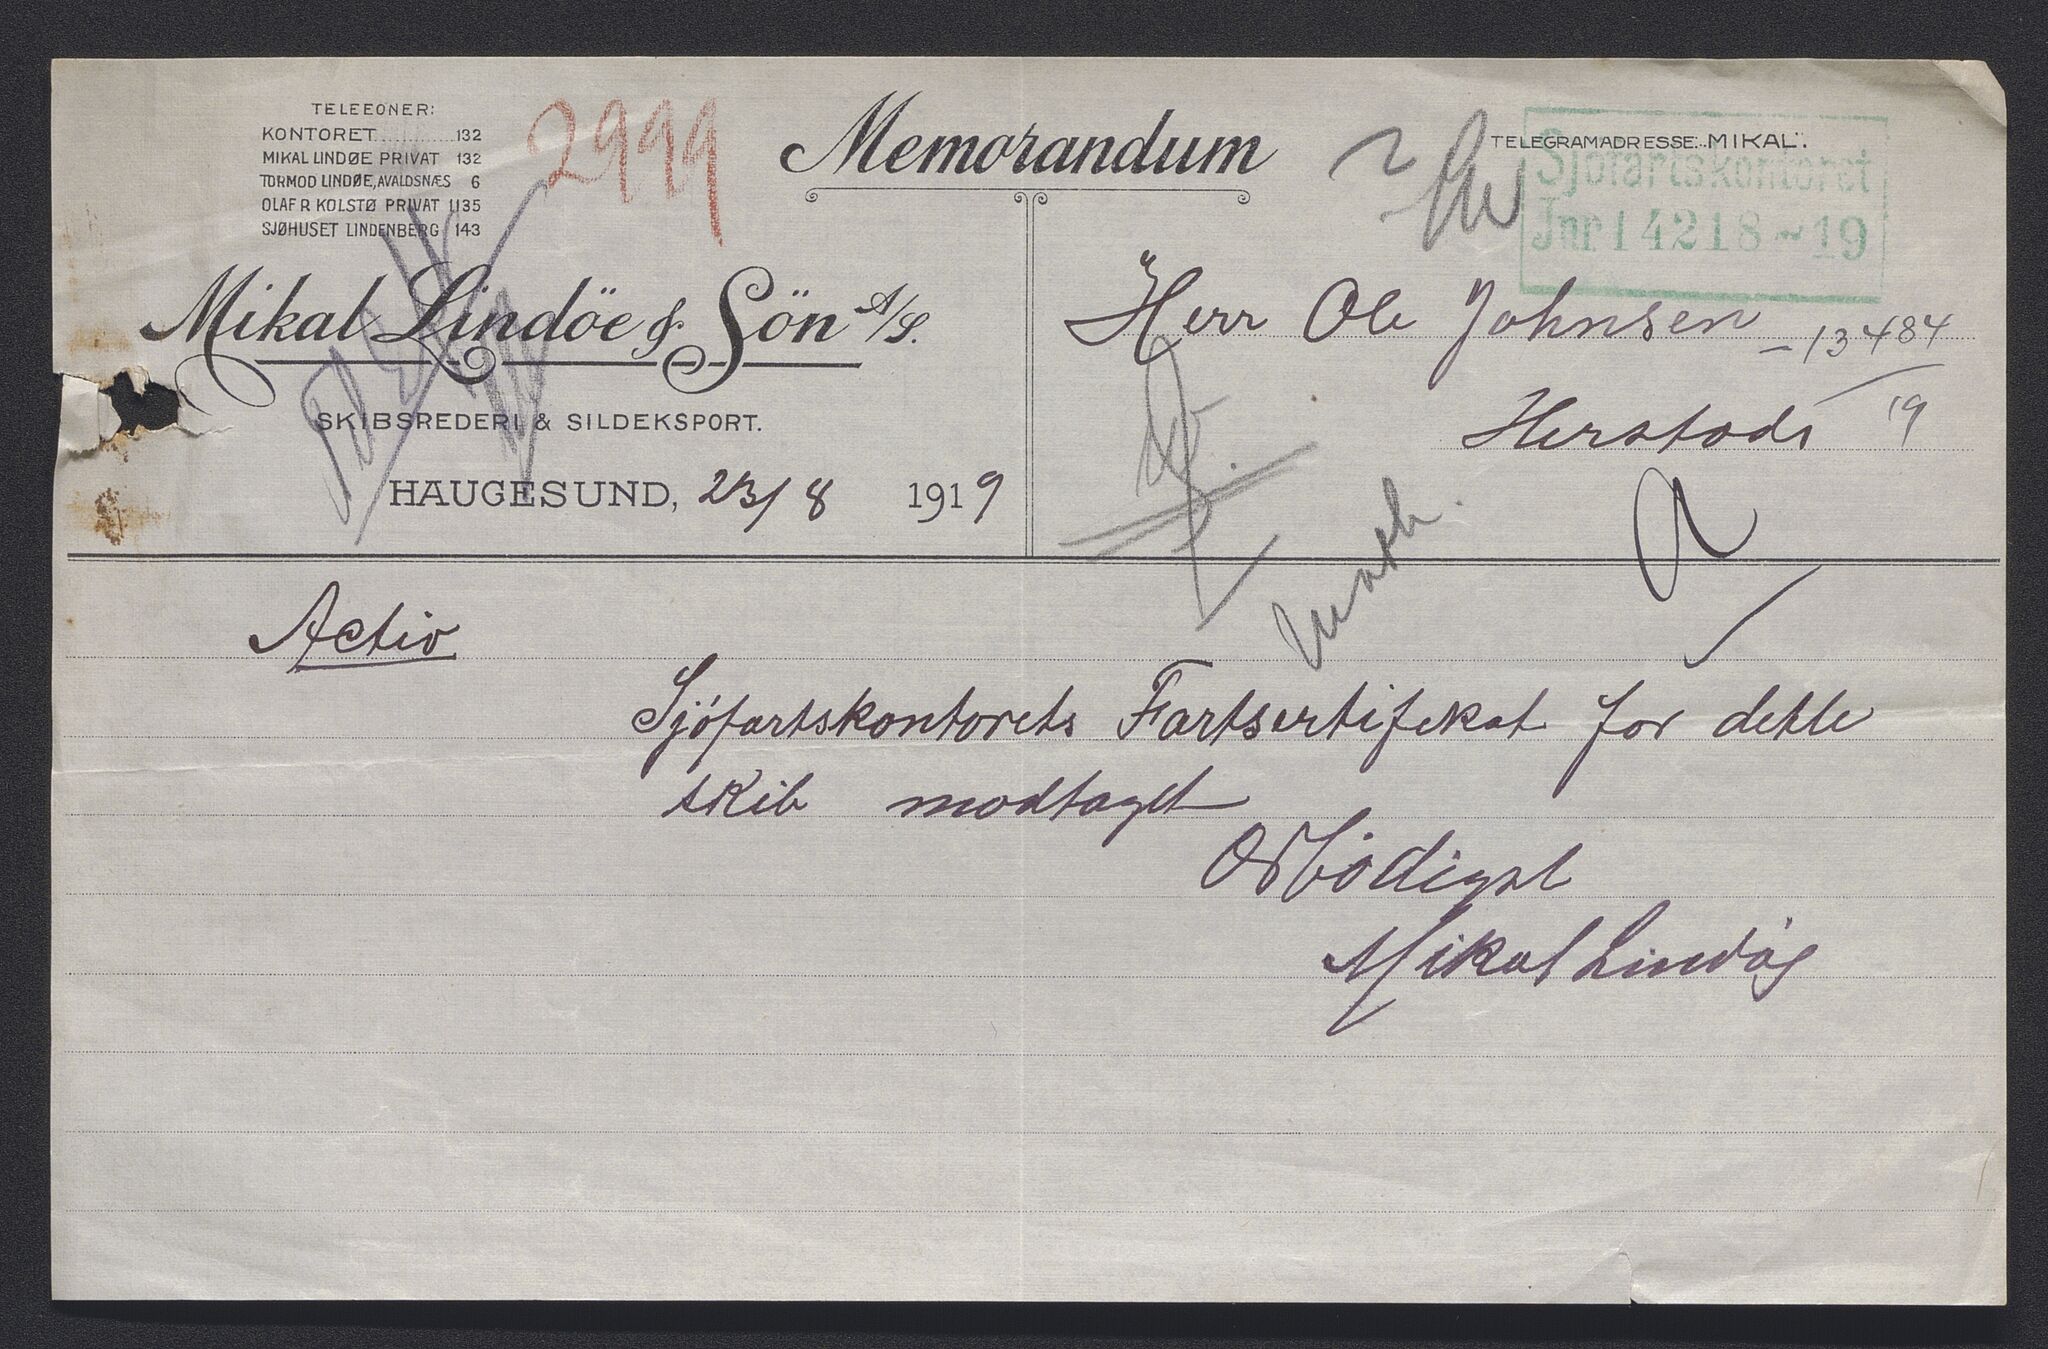 TELEEONER:
KONTORET ........ 132
MIKAL LINDØE PRIVAT 132
TORMOD LINDØE, AVALDSNÆS 6
OLAF R KOLSTØ PRIVAT 1135
SJØHUSET LINDENBERG 143
2999
Memorandum
TELEGRAMADRESSE: „MIKAL".
Sjøfartskontoret
Jnr 14218-19
Mikal Lindöe & Sön A/S.
SKIBSREDERI & SILDEKSPORT.
HAUGESUND, 23/8 1919
Herr Ole Johnsen
- 13484
19
Activ
Sjøfartskontorets Fartsertifekat for dette
skib modtaget
Ærbødigst
Mikal Lindøe